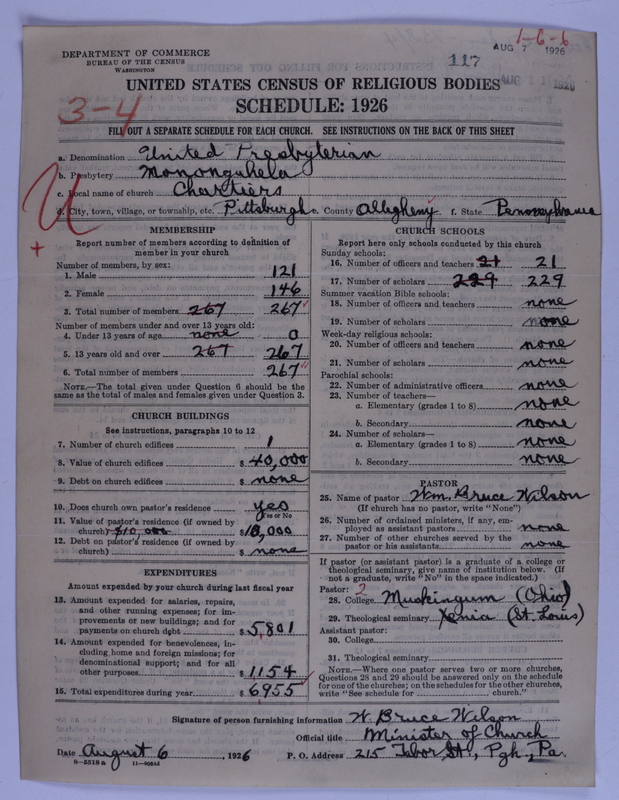 1-6-6
AUG 7 1926
117
DEPARTMENT OF COMMERCE
BUREAU OF THE CENSUS
WASHINGTON
UNITED STATES CENSUS OF RELIGIOUS BODIES
SCHEDULE: 1926
3-4
FILL OUT A SEPARATE SCHEDULE FOR EACH CHURCH. SEE INSTRUCTIONS ON THE BACK OF THIS SHEET
a. Denomination United Presbyterian
b. Presbytery Monongahela
c. Local name of church Chartiers
d. City, town, village, or township, etc. Pittsburgh e. County Allegheny f. State Pennsylvania
U
+
MEMBERSHIP
Report number of members according to definition of
member in your church
Number of members, by sex:
1. Male 121
2. Female 146
3. Total number of members 267 267
Number of members under and over 13 years old:
4. Under 13 years of age none 0
5. 13 years old and over 267 267
6. Total number of members 267
NOTE.—The total given under Question 6 should be
same as the total of males and females given under Question 3.
CHURCH BUILDINGS
See instructions, paragraphs 10 to 12
7. Number of church edifices 1
8. Value of church edifices $ 40,000
9. Debt on church edifices $ none
10. Does church own pastor's residence yes
Yes or No
11. Value of pastor's residence (if owned by
church) $10,000 $10,000
12. Debt on pastor's residence (if owned by
church) $ none
EXPENDITURES
Amount expended by your church during last fiscal year
13. Amount expended for salaries, repairs,
and other running expenses; for im-
provements or new buildings; and for
payments on church debt $ 5801
14. Amount expended for benevolences, in-
cluding home and foreign missions; for
denominational support; and for all
other purposes $ 1154
15. Total expenditures during year $ 6955
CHURCH SCHOOLS
Report here only schools conducted by this church
Sunday schools:
16. Number of officers and teachers 21 21
17. Number of scholars 229 229
Summer vacation Bible schools:
18. Number of officers and teachers none
19. Number of scholars none
Week-day religious schools:
20. Number of officers and teachers none
21. Number of scholars none
Parochial schools:
22. Number of administrative officers none
23. Number of teachers—
a. Elementary (grades 1 to 8) none
b. Secondary none
24. Number of scholars—
a. Elementary (grades 1 to 8) none
b. Secondary none
PASTOR
25. Name of pastor Wm Bruce Wilson
(If church has no pastor, write "None")
26. Number of ordained ministers, if any, em-
ployed as assistant pastors none
27. Number of other churches served by the
pastor or his assistants none
If pastor (or assistant pastor) is a graduate of a college or
theological seminary, give name of institution below. (If
not a graduate, write "No" in the space indicated.)
Pastor: 2
28. College Muskingum (Ohio)
29. Theological seminary Xenia (St. Louis)
Assistant pastor:
30. College
31. Theological seminary
NOTE.—Where one pastor serves two or more churches,
Questions 28 and 29 should be answered only on the schedule
for one of the churches; on the schedules for the other churches,
write "See schedule for church."
Signature of person furnishing information W. Bruce Wilson
Official title Minister of Church
Date August 6, 1926 P. O. Address 215 Tabor St., Pgh, Pa.
8-5518 a